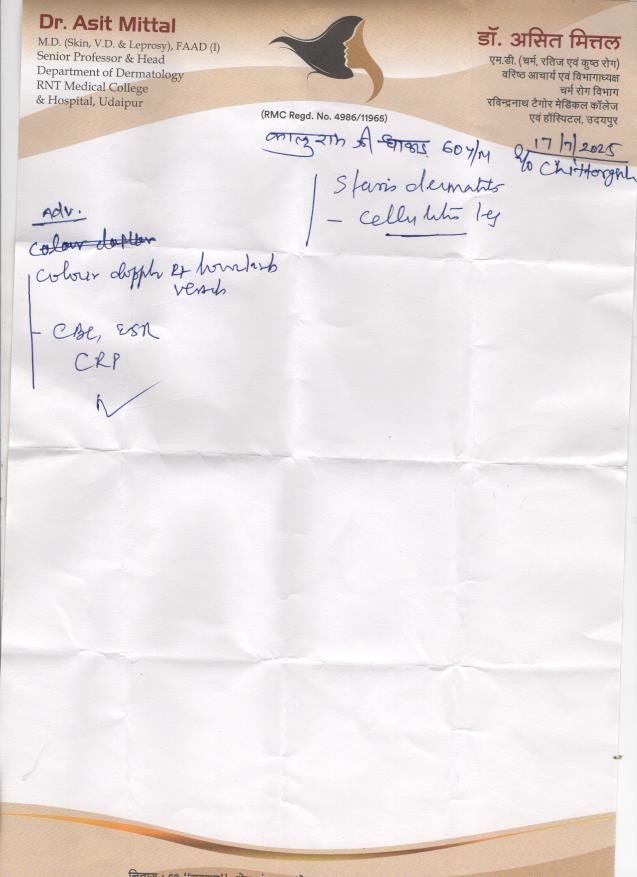 Dr. Asit Mittal
M.D. (Skin, V.D. & Leprosy), FAAD (I)
Senior Professor & Head
Department of Dermatology
RNT Medical College
& Hospital, Udaipur
डॉ. असित मित्तल
एम.डी. (चर्म, रतिज एवं कुष्ठ रोग)
वरिष्ठ आचार्य एवं विभागाध्यक्ष
चर्म रोग विभाग
रविन्द्रनाथ टैगोर मेडिकल कॉलेज
एवं हॉस्पिटल, उदयपुर
(RMC Regd. No. 4986/11965)
17/7/2025
कालुराम जी धाकड़ 60 Y/M
Chittorgarh
Stasis dermatitis
- cellulitis leg
Adv.
colour doppler
colour doppler Rt
- CBC, ESR
CRP